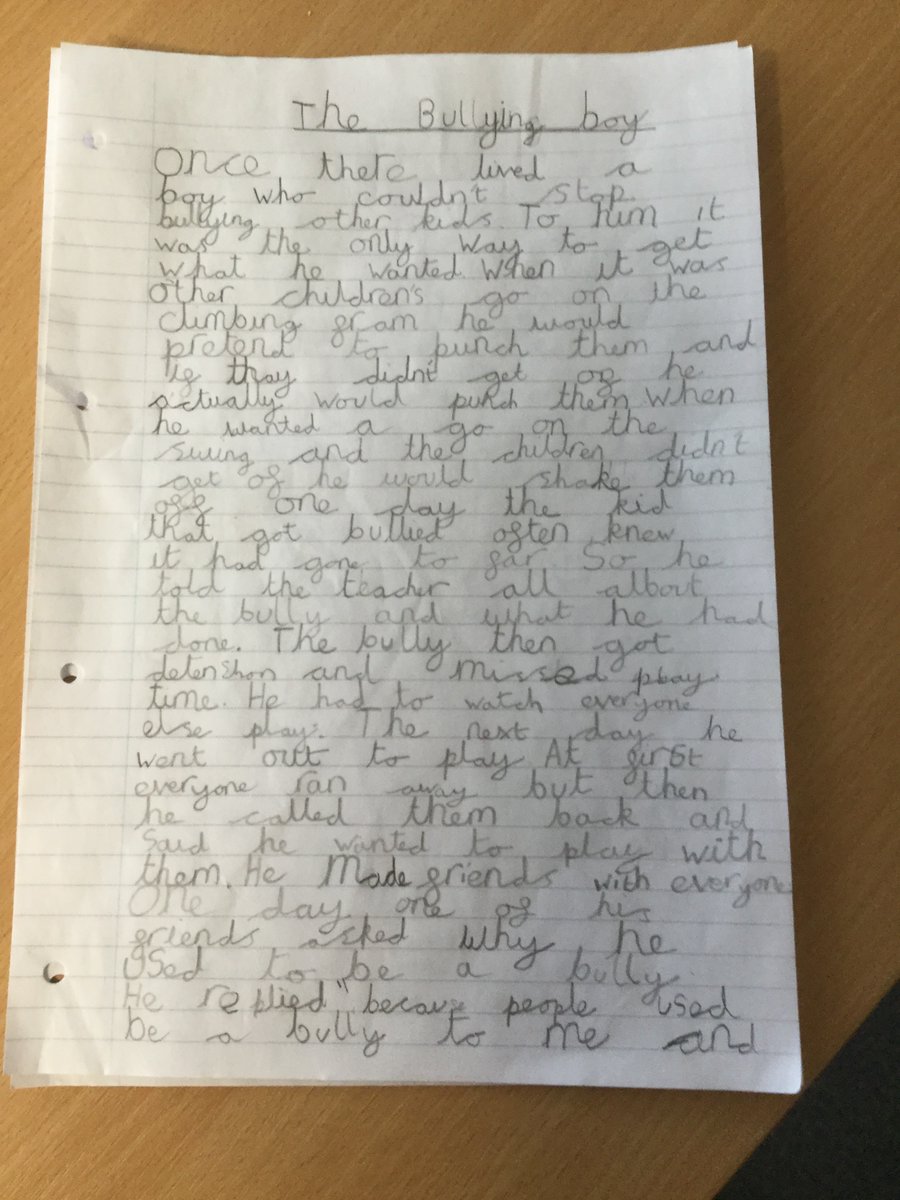 The Bullying boy
Once there lived a
boy who couldn't stop.
bullying other kids. To him it
was the only way to get
what he wanted. When it was
other children's go on the
climbing fram he would
pretend to punch them and
if thay didn't get of he
actually would punch them. When
he wanted a go on the
swing and the children didn't
get of he would shake them
off one day the kid
that got bullied often knew
it had gone to far. So he
told the teacher all albout
the bully and what he had
done. The bully then got
detenshon and missed play
time. He had to watch everyone
else play. The next day he
went out to play At first
everyone ran away but then
he called them back and
said he wanted to play with
them. He Made friends with everyone
One day one of his
friends asked why he
used to be a bully.
He replied "because people used
be a bully to me and